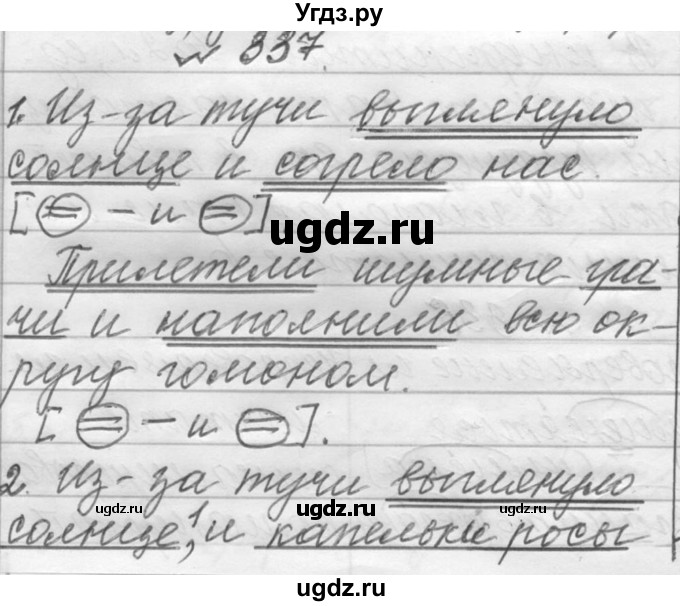 Угдз.ру
№ 337.
1. Из-за тучи выглянуло
солнце и согрело нас.
[= – и =]
ugdz.ru
Прилетели шумные гра-
чи и наполнили всю ок-
ругу гомоном.
[= – и =].
2. Из-за тучи выглянуло
ugdz.ru ugdz.ru ugdz.ru
солнце,¹ и капельки росы
ugdz.ru